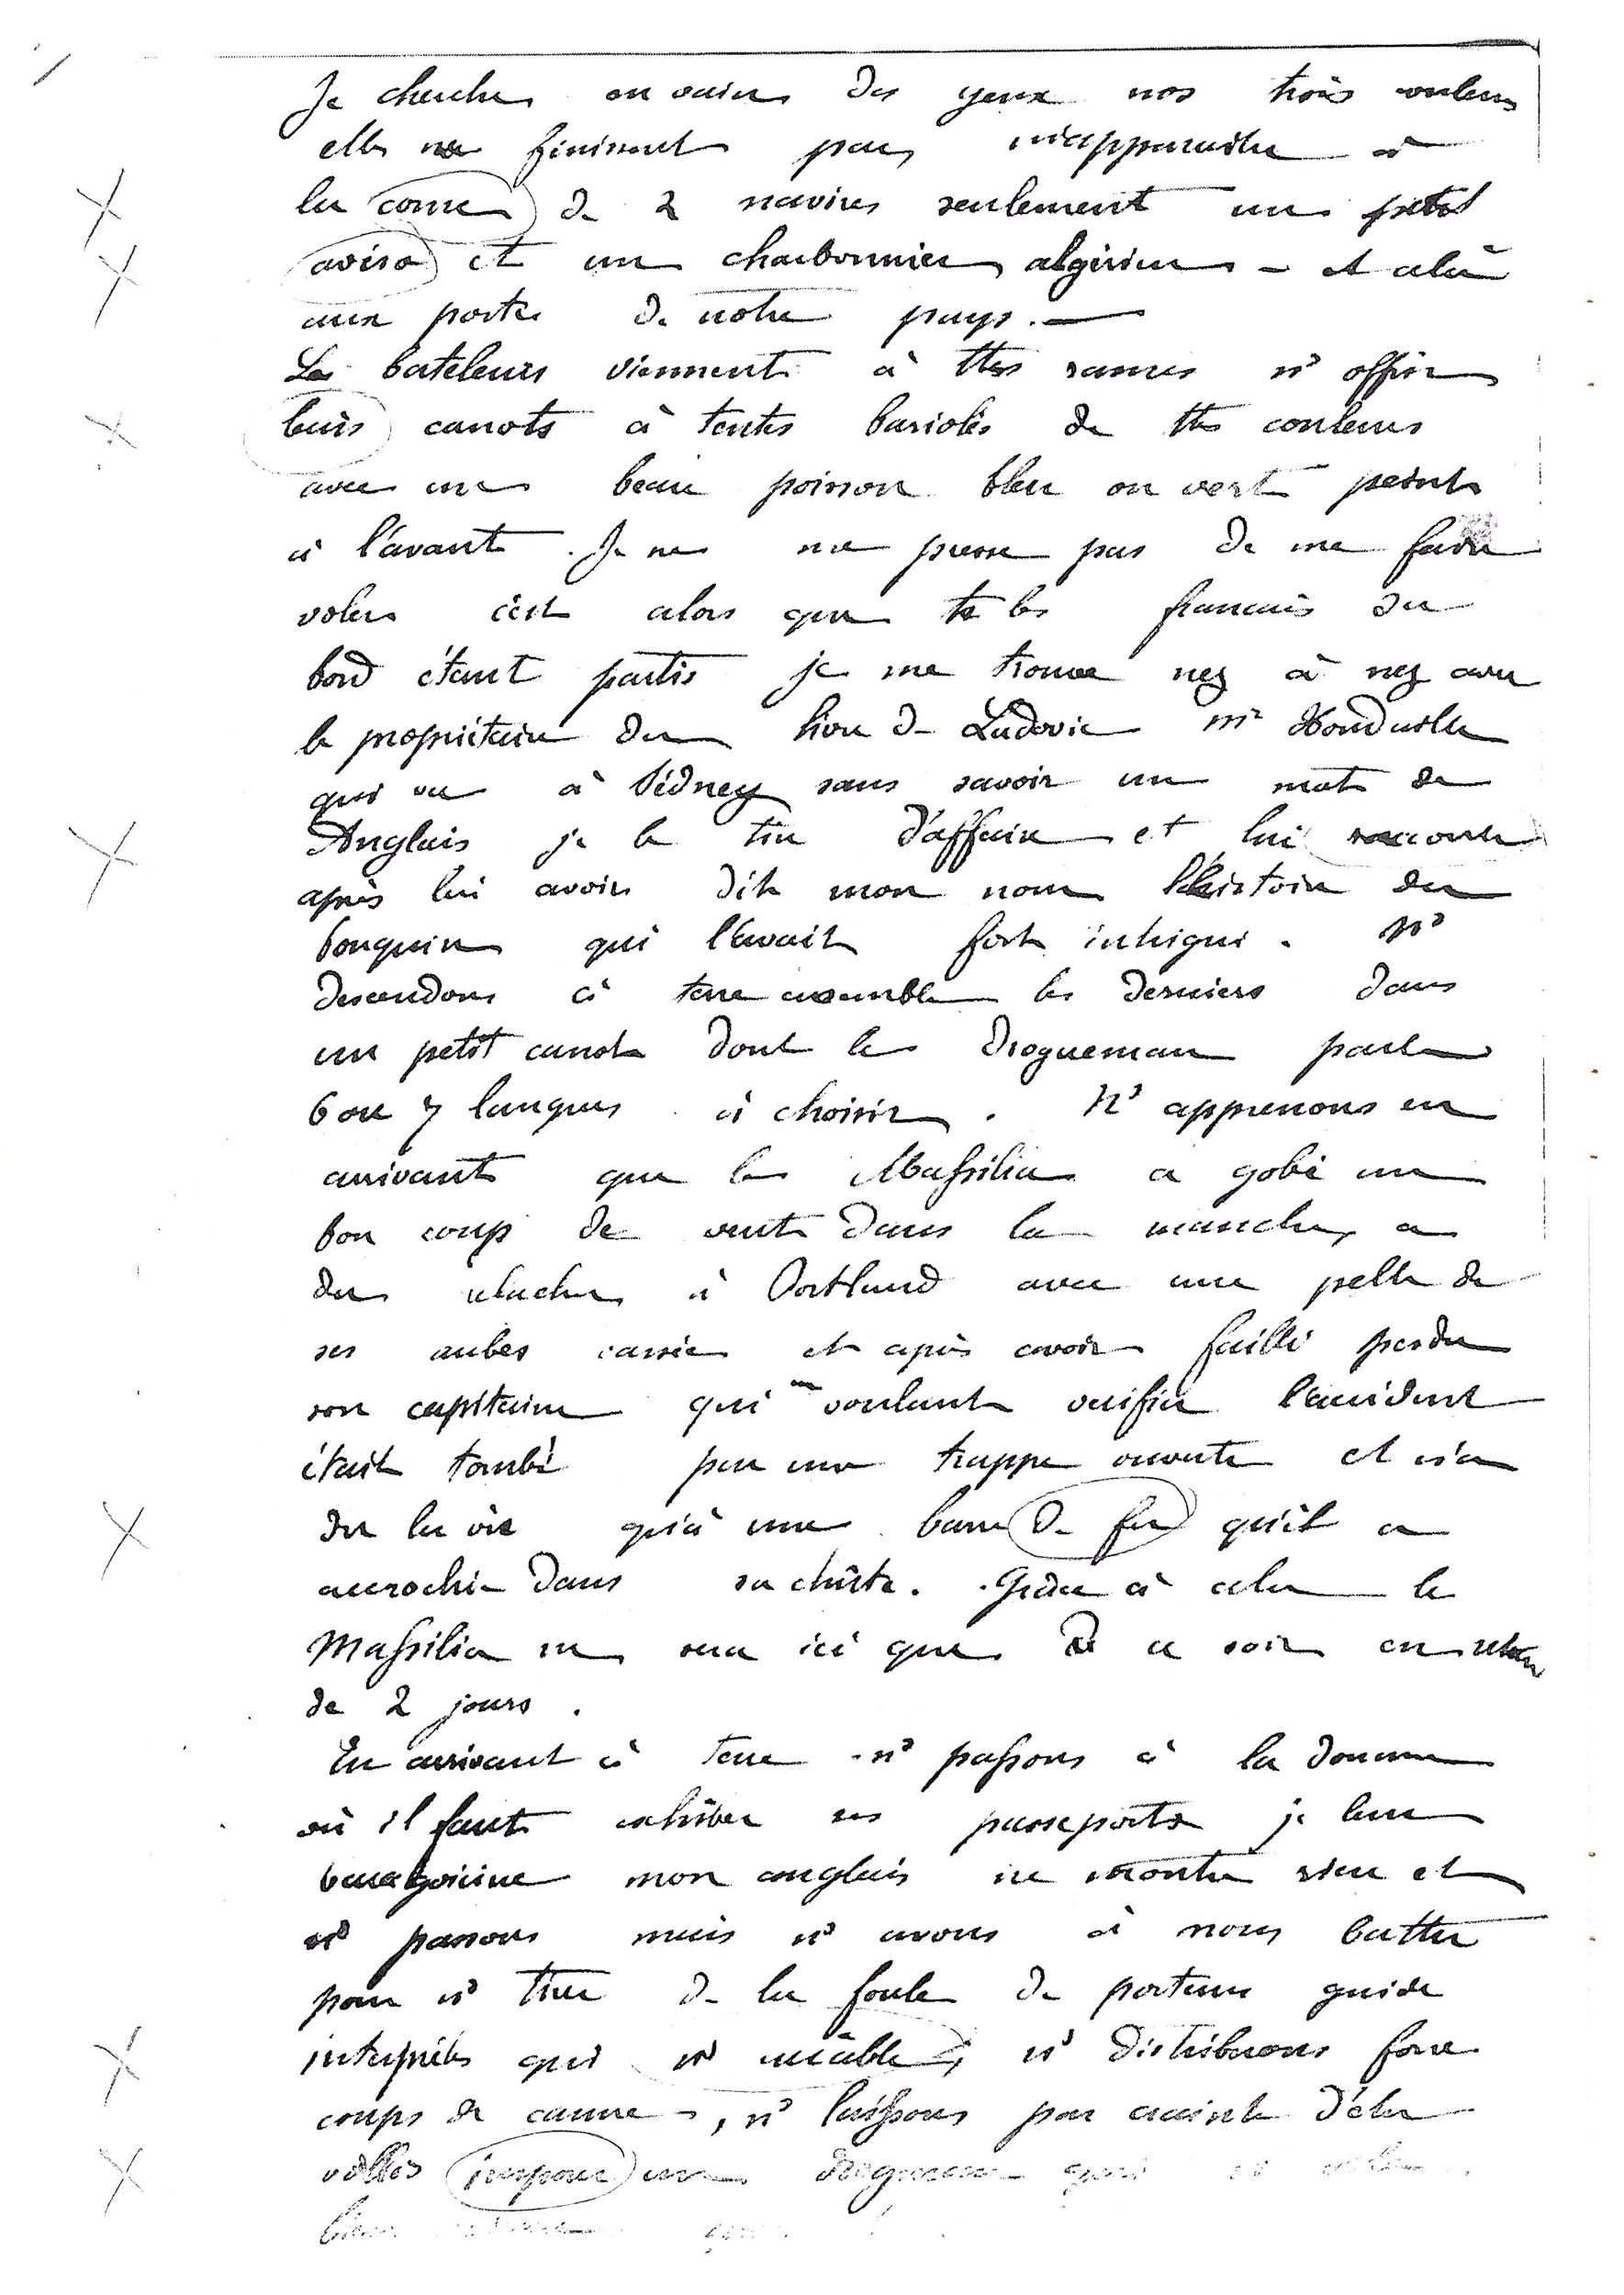 Je cherche en vain des yeux nos trois couleurs
elles ne finissent par m'apparaitre à
la corne de 2 navires seulement un petit
aviso et un charbonnier algérien - et cela
aux portes de notre pays. —
Les bateleurs viennent à ttes rames ns offrir
leurs canots à tentes bariolés de ttes couleurs
avec un beau poisson bleu ou vert peint
à l'avant. Je ne me presse pas de me faire
voler c'est alors que ts les francais du
bord étant partis je me trouve nez à nez avec
le propriétaire du lion de Ludovic mr
qui va à Sidney sans savoir un mot de
Anglais je le tire d'affaire et lui raconte
après lui avoir dit mon nom l'histoire du
bouquin qui l'avait fort intrigué. Ns
descendons à terre ensemble les derniers dans
un petit canot dont le drogueman parle
6 ou 7 langues à choisir. Ns apprenons en
arrivant que le Massilia a gobé un
bon coup de vent dans la manche, a
du relacher à Portland avec une pelle de
ses aubes cassée et après avoir failli perdre
son capitaine qui en voulant verifier l'accident
était tombé par une trappe ouverte et n'a
du la vie qu'à une barre de fer qu'il a
accrochée dans sa chûte. Grâce à cela le
Massilia ne sera ici que ce soir en retard
de 2 jours.
En arrivant à terre ns passons à la douane
où il faut exhiber ses passeports je leur
baragouine mon anglais ne montre rien et
ns passons mais ns avons à nous battre
pour ns tirer de la foule de porteurs guide
interprètes qui ns accable, ns distribuons force
coups de canne, ns laissons par crainte d'être
volés un drogueman qui
bien